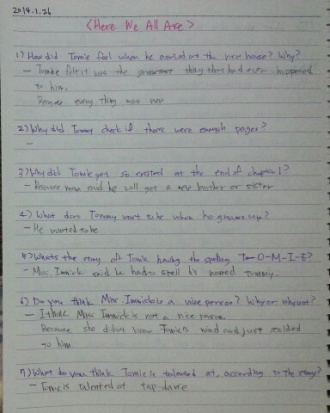 2014.1.26
<Here We All Are>
1) How did Tomie feel when he arrived at the new house? Why?
- Tomie felt it was the greatest thing that had ever happened
to him.
Because every thing was new
2) Why did Tommy check if there were enough pages?
-
3) Why did Tomie get so excited at the end of chapter 1?
- Because mom said he will get a new brother or sister
4) What does Tommy want to be when he grows up?
- He wanted to be
5) What's the story of Tomie having the spelling T-O-M-I-E?
- Miss Immick said he had to spell his name Tommy.
6) Do you think Miss Immick is a nice person? Why or why not?
- I think Miss Immick is not a nice person
Because she didn't know Tomie's and just
to him.
7) What do you think Tomie is talented at, according to the story?
- Tomie is talented at tap dance